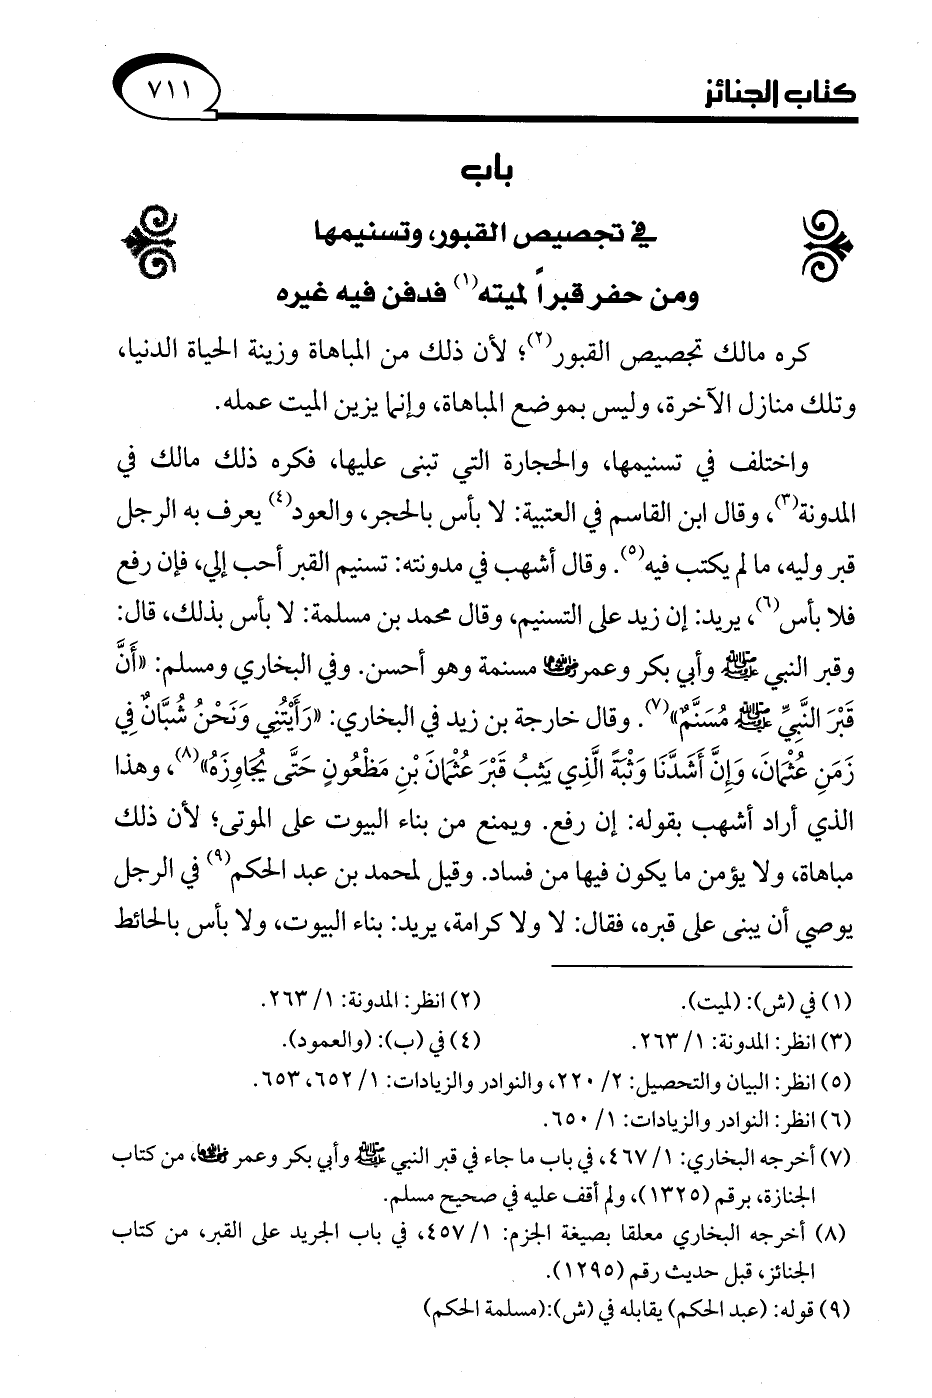 كتاب الجنائز
٧١١
باب
في تجصيص القبور، وتسنيمها
ومن حفر قبراً لميته(١) فدفن فيه غيره
كره مالك تجصيص القبور(٢)؛ لأن ذلك من المباهاة وزينة الحياة الدنيا،
وتلك منازل الآخرة، وليس بموضع المباهاة، وإنما يزين الميت عمله.
واختلف في تسنيمها، والحجارة التي تبنى عليها، فكره ذلك مالك في
المدونة(٣)، وقال ابن القاسم في العتبية: لا بأس بالحجر، والعود(٤) يعرف به الرجل
قبر وليه، ما لم يكتب فيه(٥). وقال أشهب في مدونته: تسنيم القبر أحب إلي، فإن رفع
فلا بأس(٦)، يريد: إن زيد على التسنيم، وقال محمد بن مسلمة: لا بأس بذلك، قال:
وقبر النبي ﷺ وأبي بكر وعمر رضي الله عنهما مسنمة وهو أحسن. وفي البخاري ومسلم: «أَنَّ
قَبْرَ النَّبِيِّ ﷺ مُسَنَّمٌ»(٧). وقال خارجة بن زيد في البخاري: «رَأَيْتُنِي وَنَحْنُ شُبَّانٌ فِي
زَمَنِ عُثْمَانَ، وَإِنَّ أَشَدَّنَا وَثْبَةً الَّذِي يَثِبُ قَبْرَ عُثْمَانَ بْنِ مَظْعُونٍ حَتَّى يُجَاوِزَهُ»(٨)، وهذا
الذي أراد أشهب بقوله: إن رفع. ويمنع من بناء البيوت على الموتى؛ لأن ذلك
مباهاة، ولا يؤمن ما يكون فيها من فساد. وقيل لمحمد بن عبد الحكم(٩) في الرجل
يوصي أن يبنى على قبره، فقال: لا ولا كرامة، يريد: بناء البيوت، ولا بأس بالحائط
(١) في (ش): (لميت). (٢) انظر: المدونة: ١/ ٢٦٣.
(٣) انظر: المدونة: ١/ ٢٦٣. (٤) في (ب): (والعمود).
(٥) انظر: البيان والتحصيل: ٢/ ٢٢٠، والنوادر والزيادات: ١/ ٦٥٢، ٦٥٣.
(٦) انظر: النوادر والزيادات: ١/ ٦٥٠.
(٧) أخرجه البخاري: ١/ ٤٦٧، في باب ما جاء في قبر النبي ﷺ وأبي بكر وعمر رضي الله عنهما، من كتاب
الجنازة، برقم (١٣٢٥)، ولم أقف عليه في صحيح مسلم.
(٨) أخرجه البخاري معلقا بصيغة الجزم: ١/ ٤٥٧، في باب الجريد على القبر، من كتاب
الجنائز، قبل حديث رقم (١٢٩٥).
(٩) قوله: (عبد الحكم) يقابله في (ش):(مسلمة الحكم)